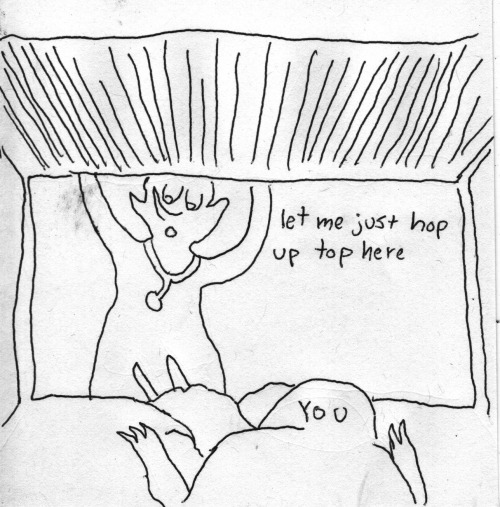 let me just hop
up top here
YOU